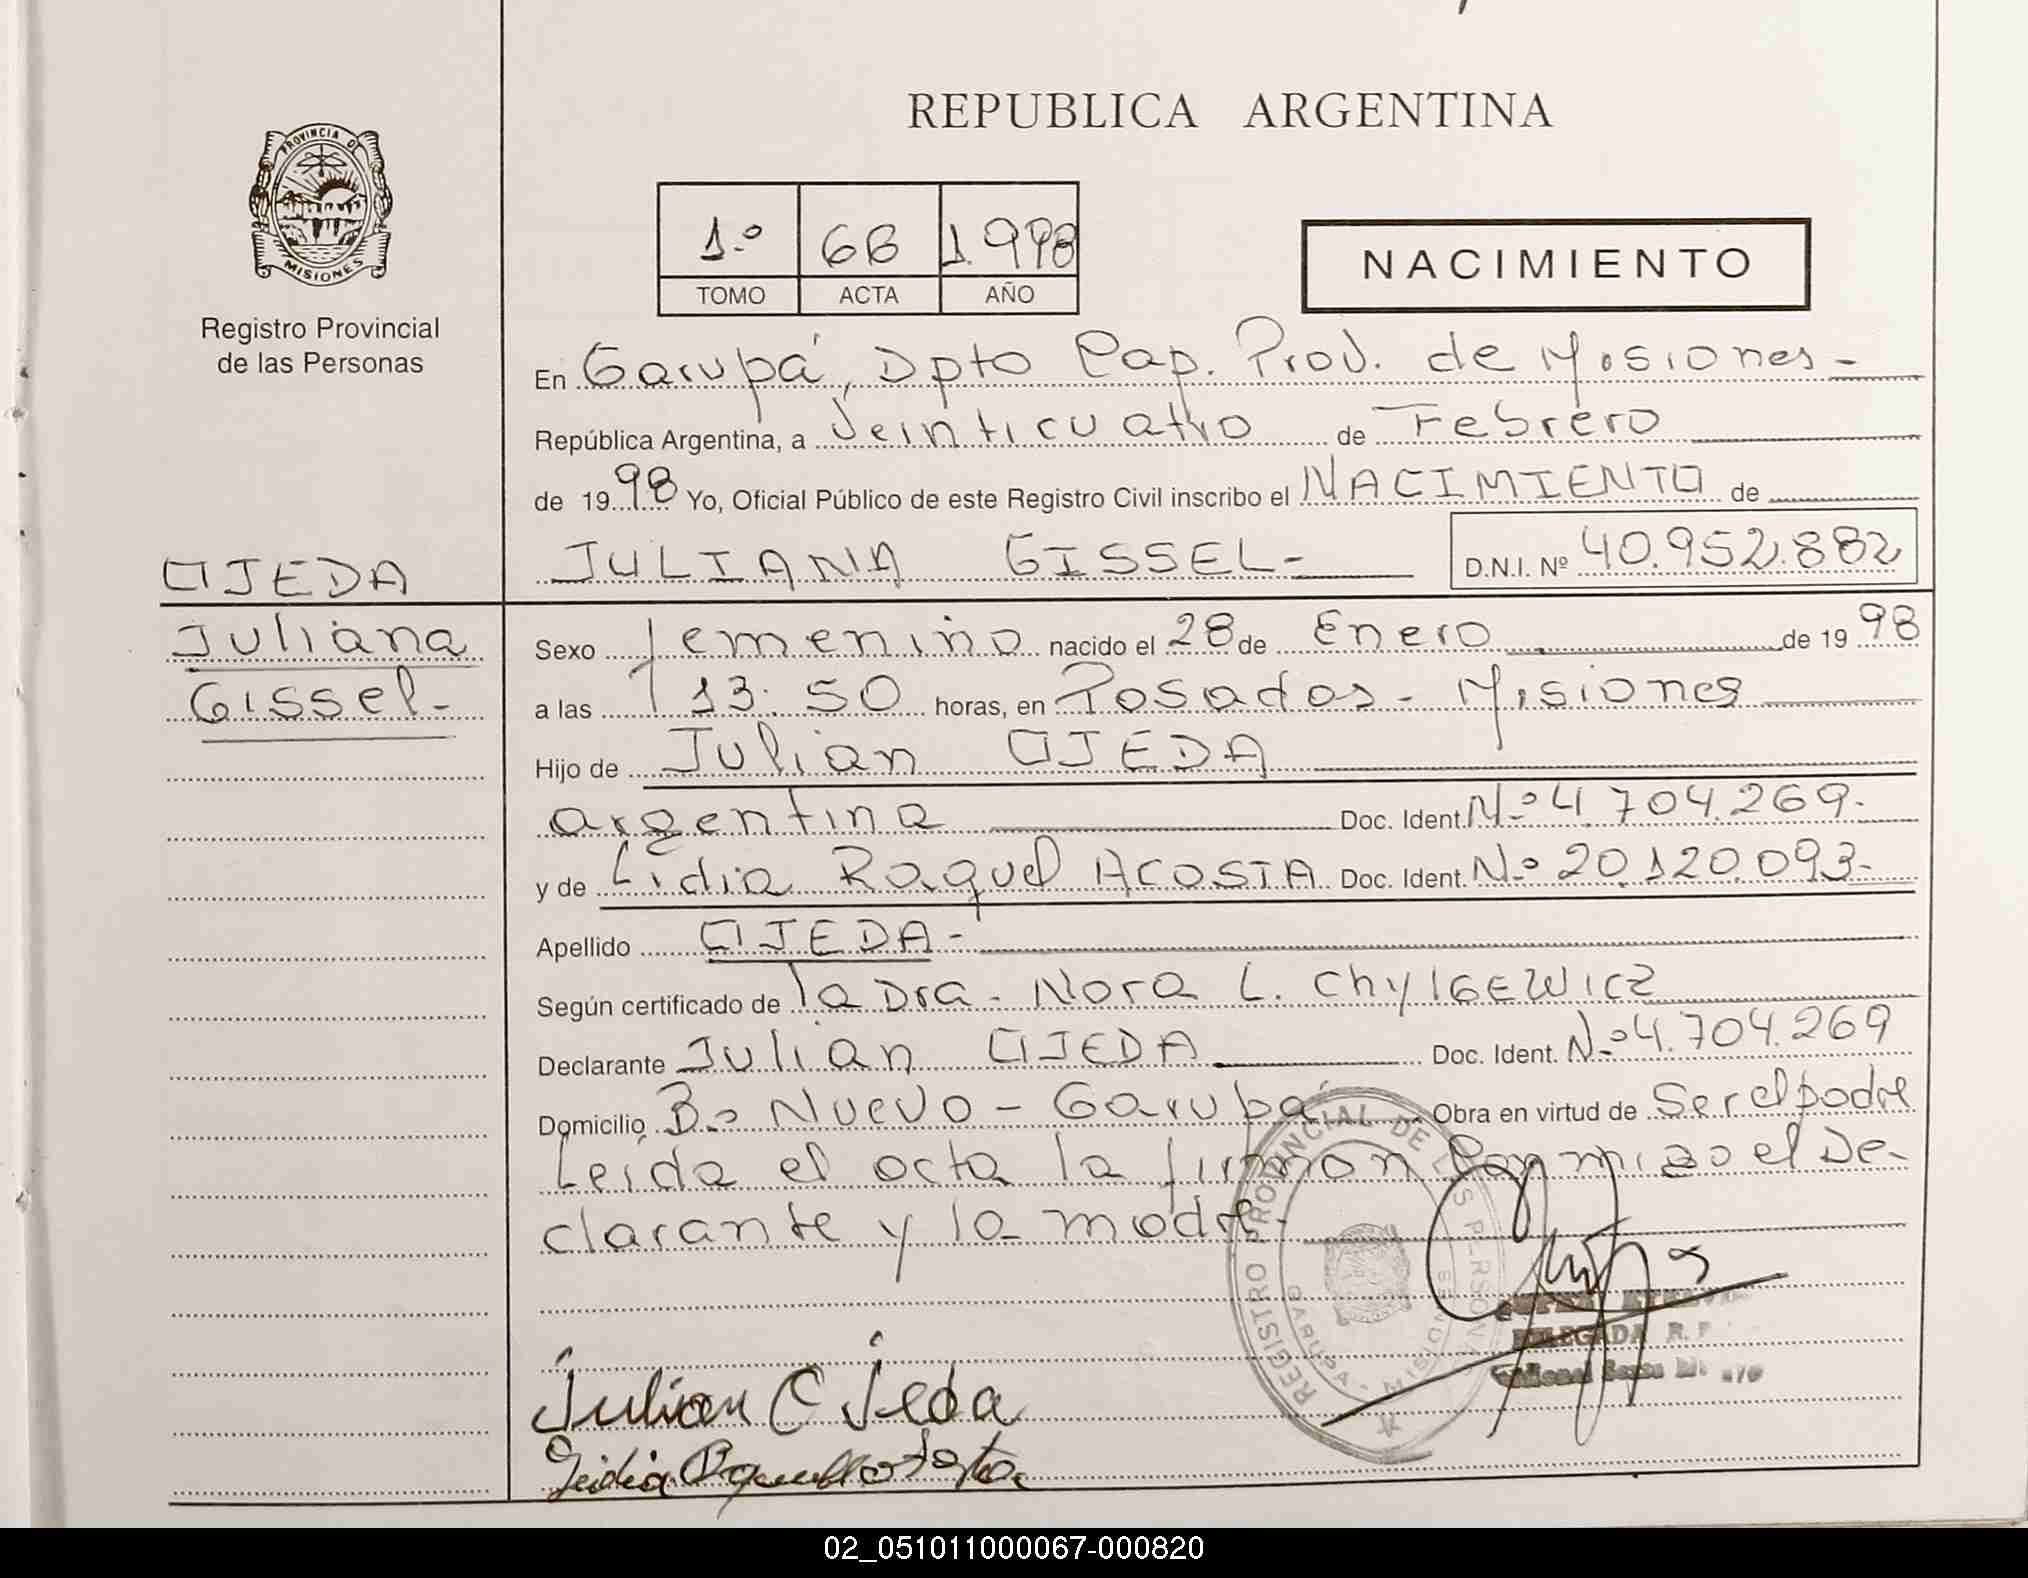 REPUBLICA ARGENTINA
PROVINCIA DE
MISIONES
Registro Provincial
de las Personas
1.º 68 1.998
TOMO ACTA AÑO
NACIMIENTO
En Garupá, Dpto Cap. Prov. de Misiones-
República Argentina, a Veinticuatro de Febrero
de 1998 Yo, Oficial Público de este Registro Civil inscribo el NACIMIENTO de
OJEDA
JULIANA GISSEL- D.N.I. Nº 40.952.882
Juliana
Gissel-
Sexo femenino nacido el 28 de Enero de 1998
a las 13:50 horas, en Posadas - Misiones
Hijo de Julian OJEDA
argentina Doc. Ident. Nº 4.704.269.
y de Lidia Raquel ACOSTA Doc. Ident. Nº 20.120.093-
Apellido OJEDA-
Según certificado de la Dra. Nora L. Chylgewicz
Declarante Julian OJEDA Doc. Ident. Nº 4.704.269
Domicilio Bº Nuevo - Garupá Obra en virtud de Ser el padre
Leida el acta la firman conmigo el De-
clarante y la madre-
REGISTRO PROVINCIAL DE LAS PERSONAS
GARUPA - MISIONES
DELEGADA R. P.
Julian OJeda
Lidia Raquel Acosta
02_051011000067-000820